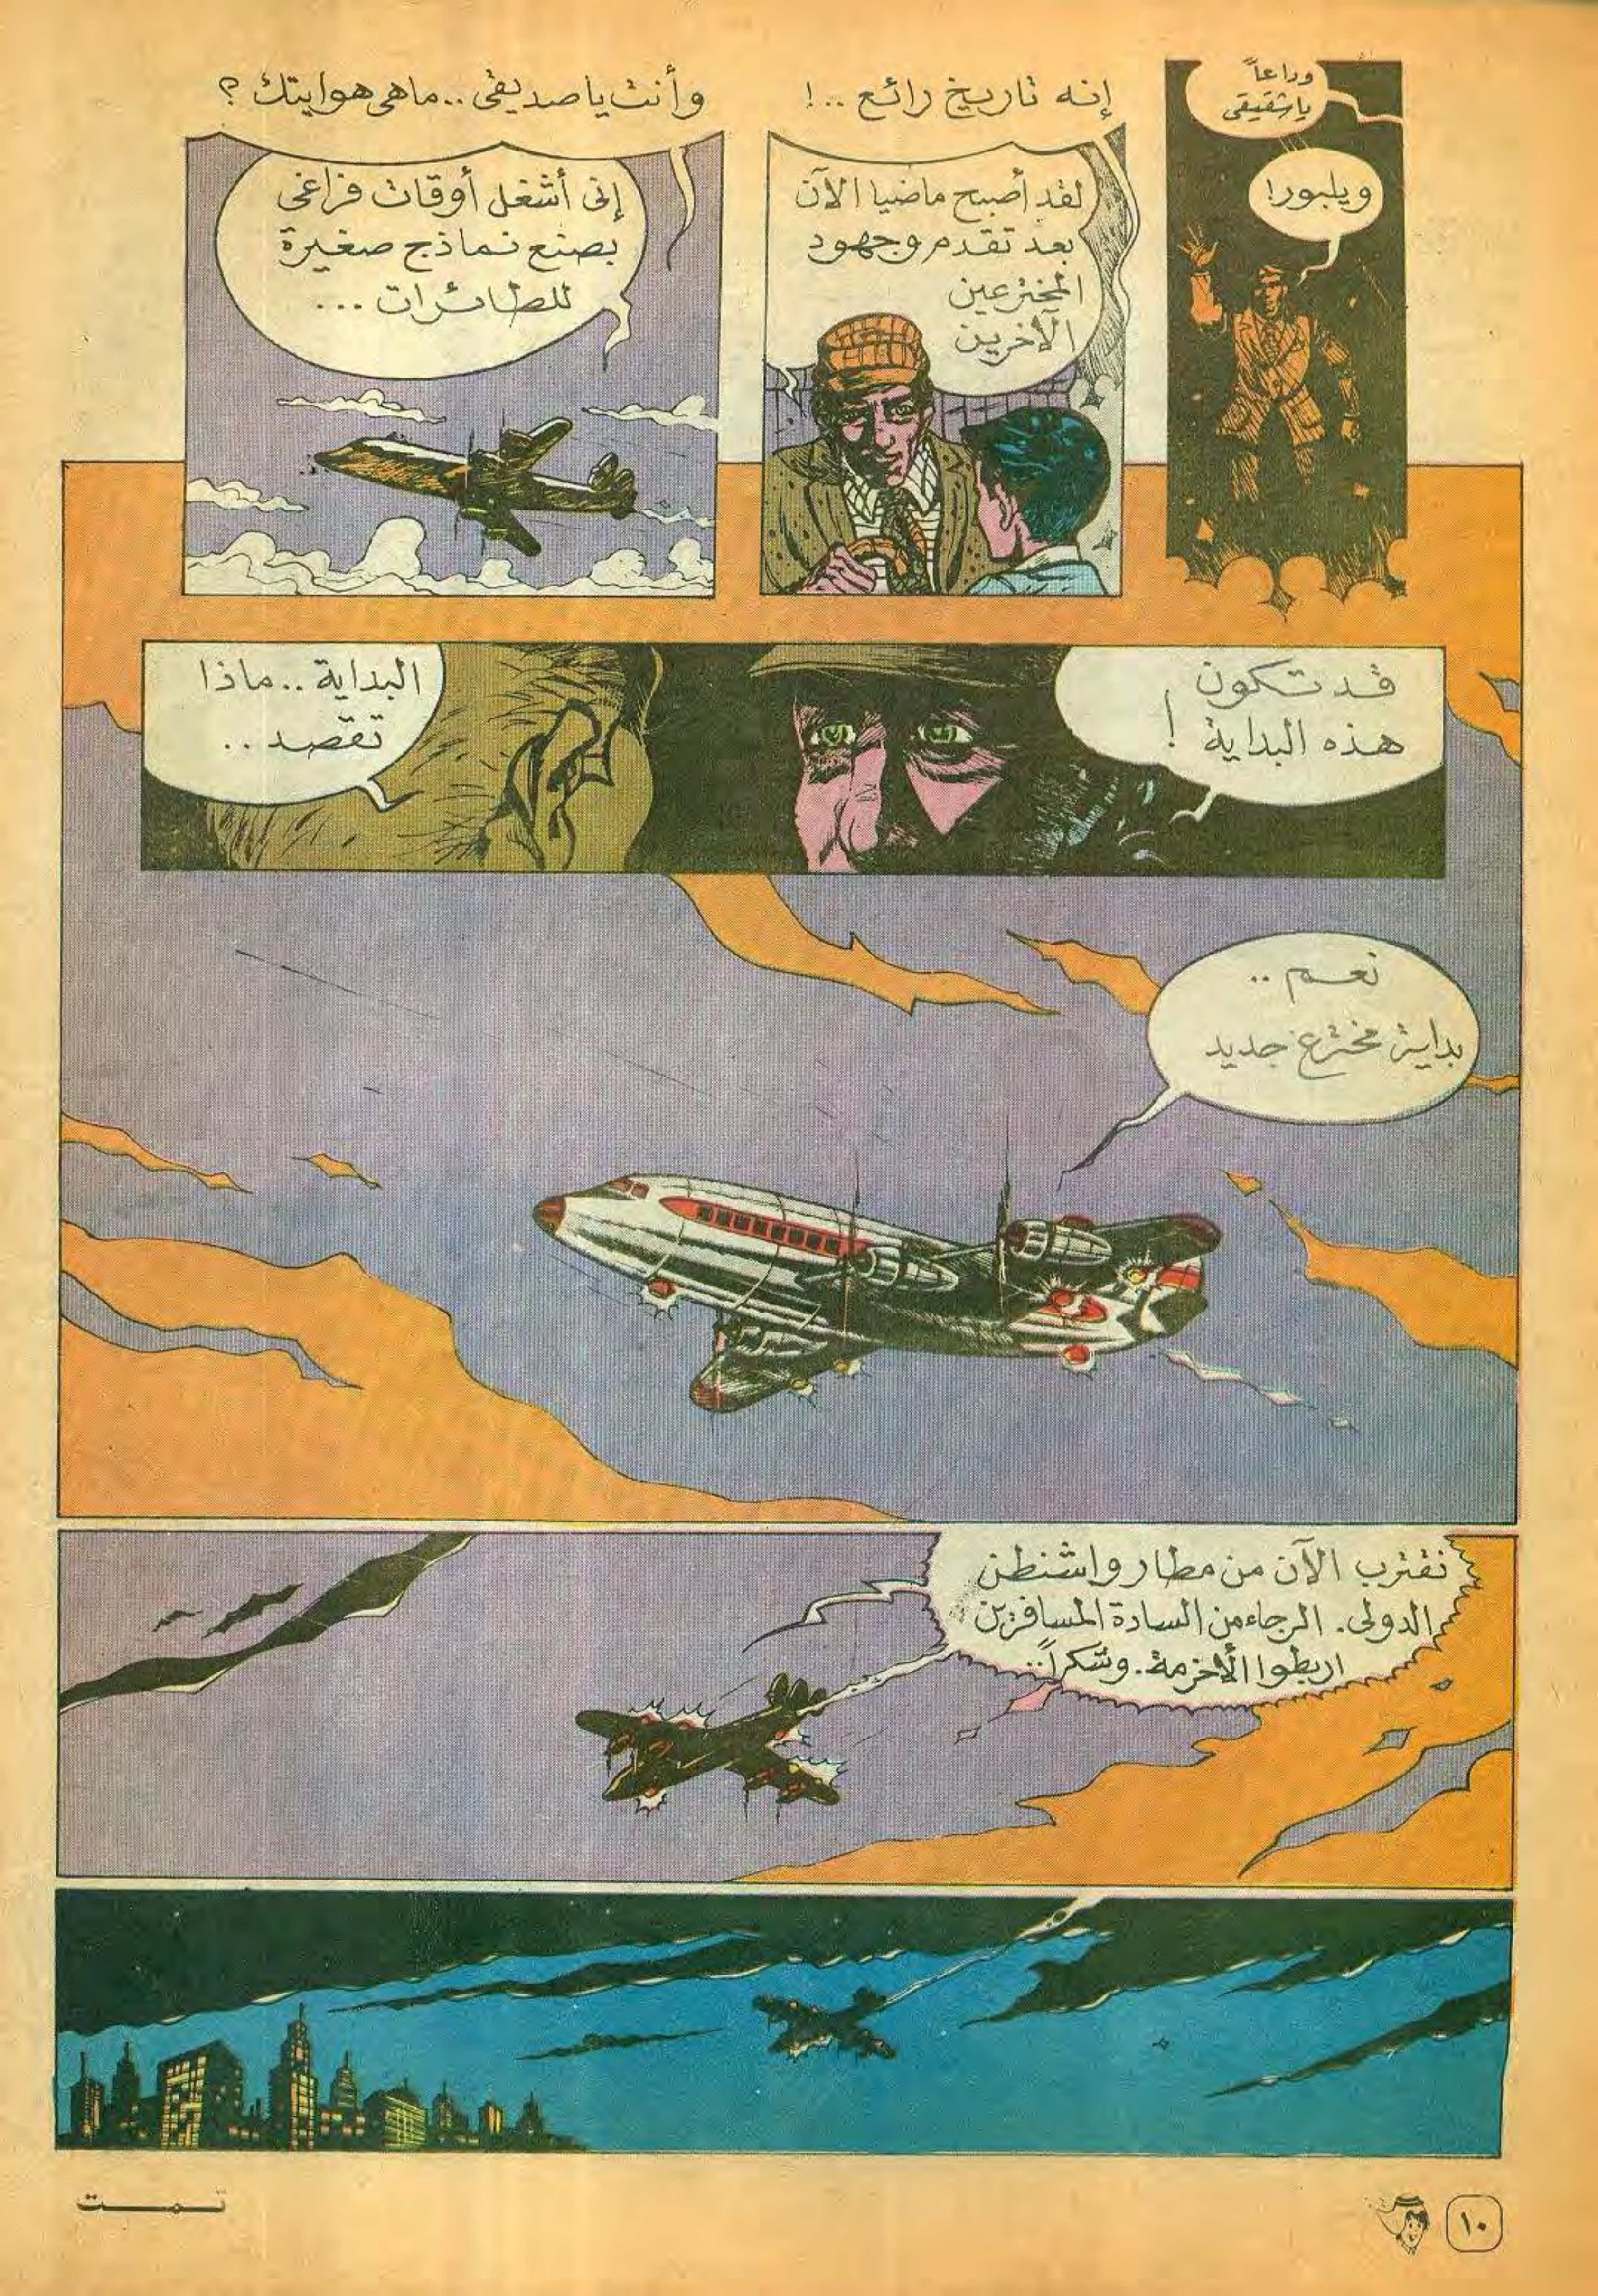 وداعاً
ياشقيقى
ويلبور!
إنه تاريخ رائع ..!
لقد أصبح ماضيا الآن
بعد تقدم وجهود
المخترعين
الآخرين
وأنت ياصديقى.. ماهى هوايتك ؟
إنى أشغل أوقات فراغى
بصنع نماذج صغيرة
للطائرات ...
قد تكون
هذه البداية !
البداية .. ماذا
تقصد ..
نعم ..
بداية مخترع جديد
نقترب الآن من مطار واشنطن
الدولى. الرجاء من السادة المسافرين
اربطوا الأحزمة. وشكراً..
تمت
١٠